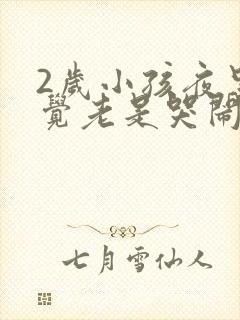 2歲小孩夜里
覺老是哭鬧
七月雪仙人